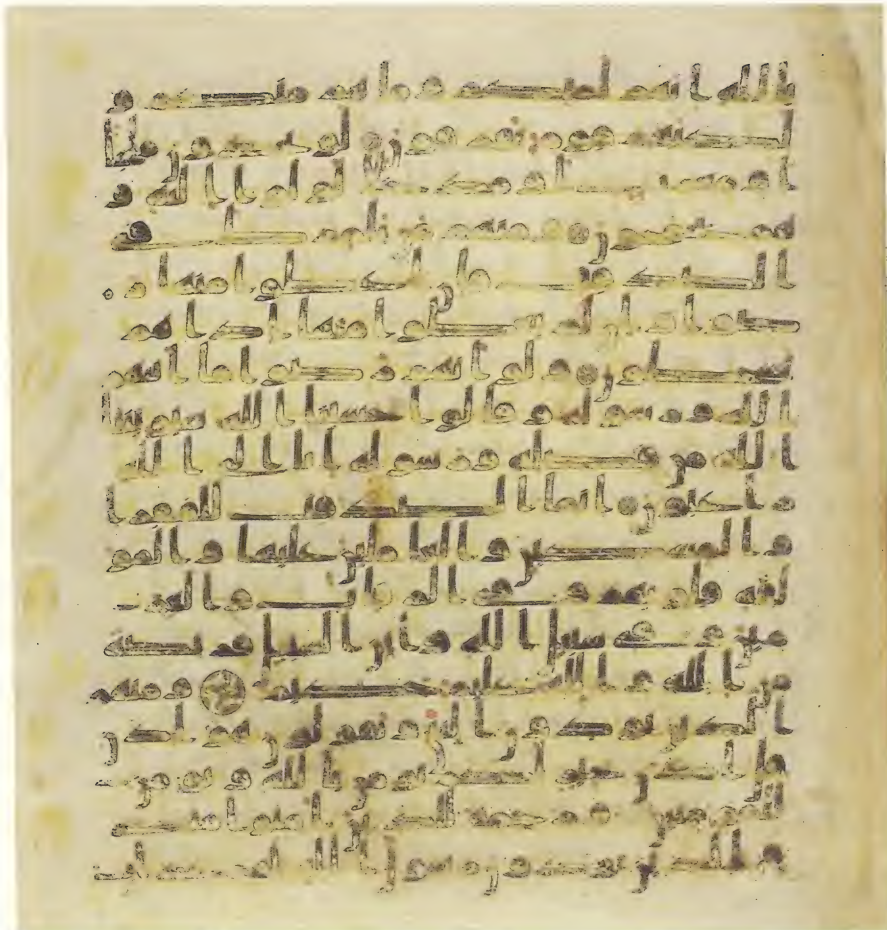 بالله انهم لمنكم وما هم منكم و
لكنهم قوم يفرقون لو يجدون ملجا
او مغرت او مدخلا لولوا اليه و
هم يجمحون ومنهم من يلمزك في
الصدقت فان اعطوا منها ر
ضوا وان لم يعطوا منها اذا هم
يسخطون ولو انهم رضوا ما اتيهم
الله ورسوله وقالوا حسبنا الله سيوتينا
الله من فضله ورسوله انا الى الله
رغبون انما الصدقت للفقرا
والمسكين والعملين عليها والمو
لفة قلوبهم وفي الرقاب والغر
مين وفي سبيل الله وابن السبيل فريضة
من الله والله عليم حكيم ومنهم
الذين يوذون النبي ويقولون هو اذن
قل اذن خير لكم يومن بالله ويومن
للمومنين ورحمة للذين امنوا منكم
والذين يوذون رسول الله لهم عذاب